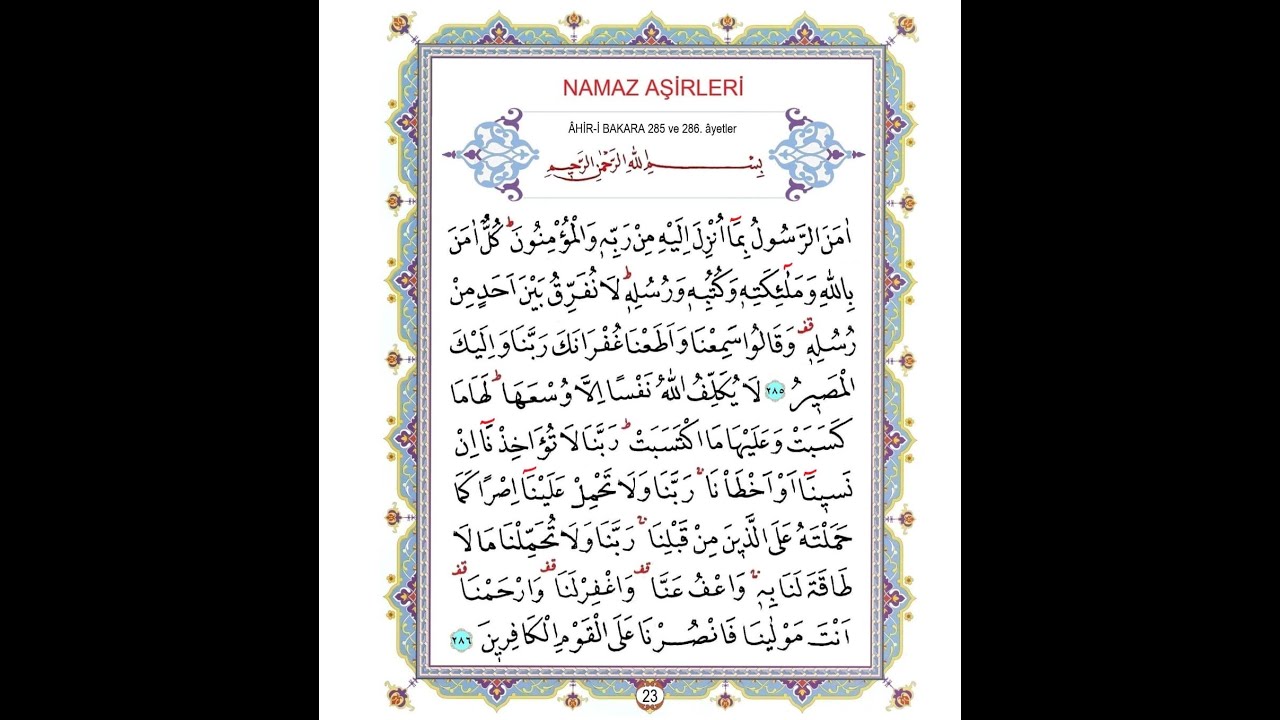 NAMAZ AŞİRLERİ
ÂHİR-İ BAKARA 285 ve 286. âyetler
بِسْمِ اللهِ الرَّحْمٰنِ الرَّحٖيمِ
اٰمَنَ الرَّسُولُ بِمَٓا اُنْزِلَ اِلَيْهِ مِنْ رَبِّهٖ وَالْمُؤْمِنُونَؕ كُلٌّ اٰمَنَ
بِاللهِ وَمَلٰٓئِكَتِهٖ وَكُتُبِهٖ وَرُسُلِهٖؕ لَا نُفَرِّقُ بَيْنَ اَحَدٍ مِنْ
رُسُلِهٖ قف وَقَالُوا سَمِعْنَا وَاَطَعْنَا غُفْرَانَكَ رَبَّنَا وَاِلَيْكَ
الْمَصٖيرُ ٢٨٥ لَا يُكَلِّفُ اللهُ نَفْسًا اِلَّا وُسْعَهَاؕ لَهَا مَا
كَسَبَتْ وَعَلَيْهَا مَا اكْتَسَبَتْؕ رَبَّنَا لَا تُؤَاخِذْنَٓا اِنْ
نَسٖينَٓا اَوْ اَخْطَأْنَاۚ رَبَّنَا وَلَا تَحْمِلْ عَلَيْنَٓا اِصْرًا كَمَا
حَمَلْتَهُ عَلَى الَّذٖينَ مِنْ قَبْلِنَاۚ رَبَّنَا وَلَا تُحَمِّلْنَا مَا لَا
طَاقَةَ لَنَا بِهٖۚ وَاعْفُ عَنَّا قف وَاغْفِرْ لَنَا قف وَارْحَمْنَا قف
اَنْتَ مَوْلٰينَا فَانْصُرْنَا عَلَى الْقَوْمِ الْكَافِرٖينَ ٢٨٦
23